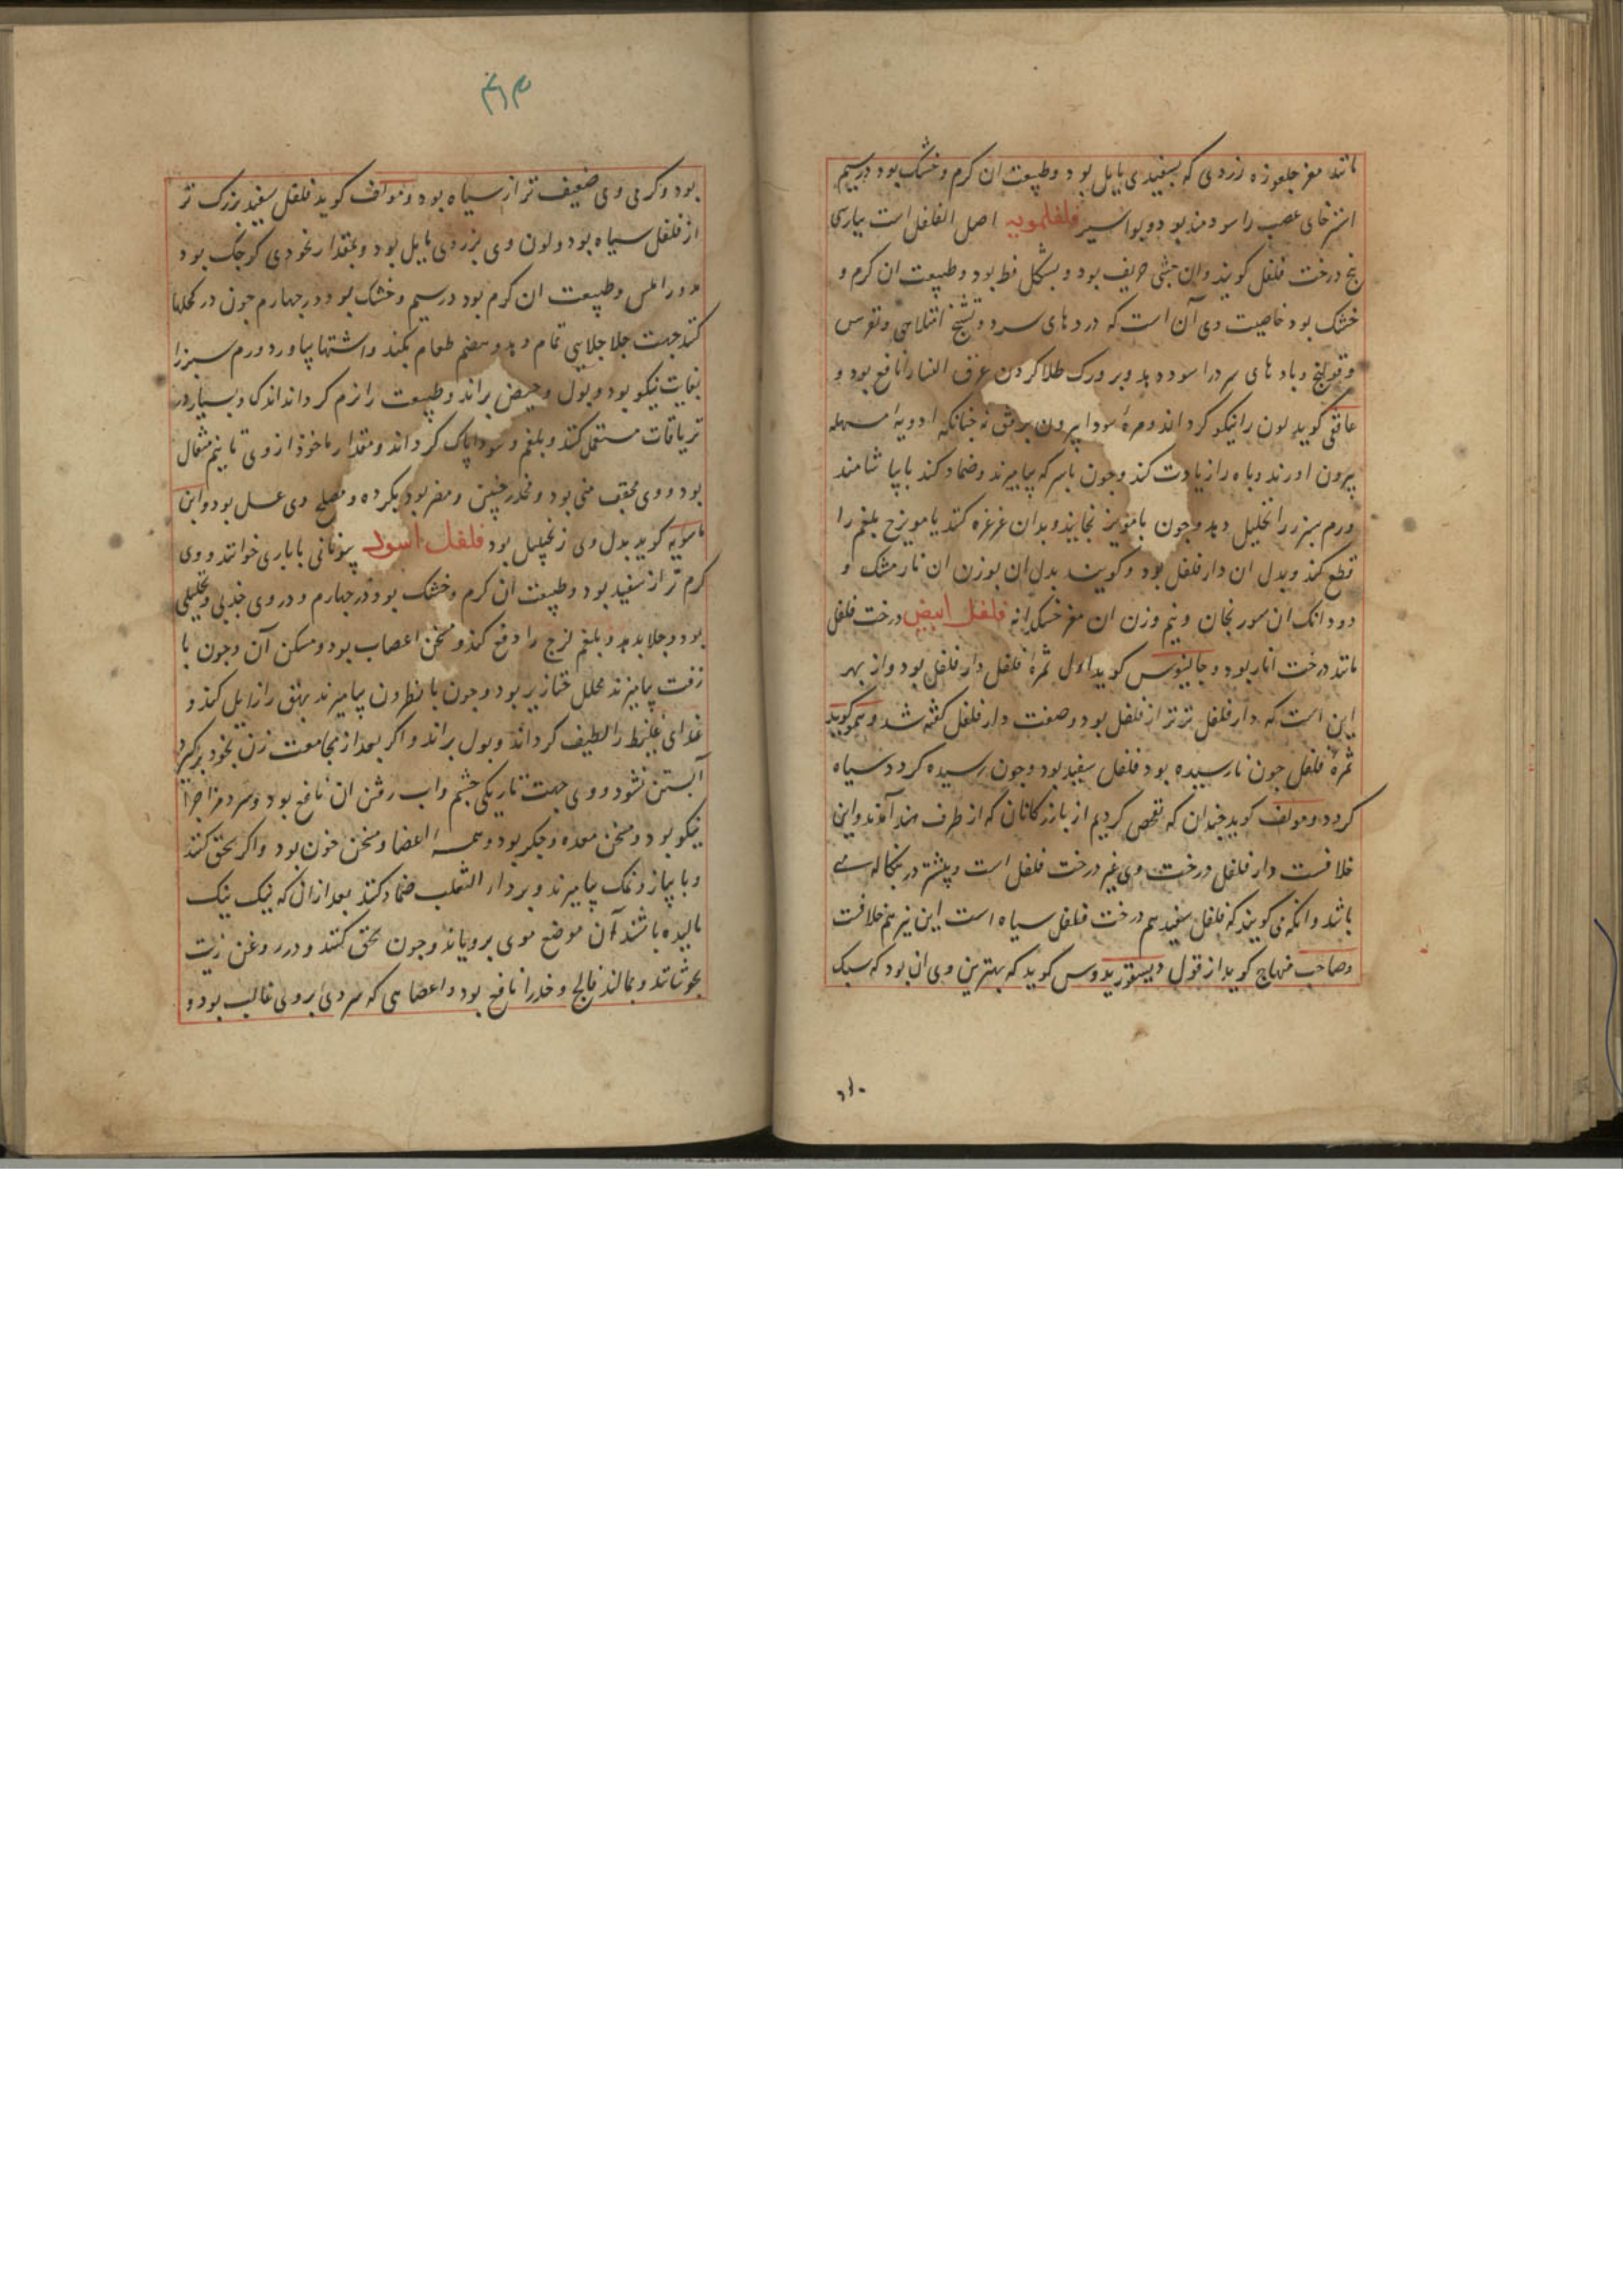 مانند مغز جلغوزه زردی که بسفیدی مایل بود و طبیعت ان کرم و خشک بود در سیم
استرخای عصب را سودمند بود و بواسیر فلفلمویه اصل الفلفل است بپارسی
بیخ درخت فلفل کویند وان خشبی حریف بود و بشکل قط بود و طبیعت ان کرم و
خشک بود خاصیت وی آن است که دردهای سرد و تشنج امتلایی و نقرس
و قولنج و بادهای سرد را سود دهد و بر ورک طلا کردن عرق النسا را نافع بود و
غافقی کوید لون را نیکو کرداند ومرهٔ سودا بیرون برفق نه چنانکه ادویهٔ مسهله
بیرون اورند وباه را زیادت کند وجون باسرکه بیامیزند وضماد کنند یا بیاشامند
ورم سبرز را تحلیل دهد وجون با مویز بخایند وبدان غرغره کنند یا مویزج بلغم را
قطع کند وبدل ان دارفلفل بود وکویند بدل ان بوزن ان نارمشک و
دو دانک ان سورنجان ونیم وزن ان مغز خسکدانه فلفل ابیض درخت فلفل
مانند درخت انار بود و جالینوس کوید اول ثمرهٔ فلفل دارفلفل بود واز بهر
این است که دارفلفل تر تر از فلفل بود وصفت دارفلفل کفته شد وهم کوید
ثمرهٔ فلفل جون نارسیده بود فلفل سفید بود وجون رسیده کردد سیاه
کردد و مولف کوید جندان که تفحص کردیم از بازرکانان که از طرف هند آمدند واین
خلافست دارفلفل درخت وی غیر درخت فلفل است وبیشتر در بنکاله می
باشد وانکه می کویند که فلفل سفید هم درخت فلفل سیاه است این نیز هم خلافست
وصاحب منهاج کوید از قول دیسقوریدوس کوید که بهترین وی ان بود که سبک
بود وکرمی وی ضعیف تر از سیاه بود و مولف کوید فلفل سفید بزرک تر
از فلفل سیاه بود ولون وی بزردی مایل بود وبمقدار نخودی کوجک بود
مدور املس وطبیعت ان کرم بود در سیم وخشک بود در جهارم جون در کحلها
کنند جهت جلا جلایی تمام دهد وهضم طعام بکند واشتها بیاورد ورم سبرز را
بغایت نیکو بود وبول وحیض براند وطبیعت را نرم کرداند اندکی وبسیار در
تریاقات مستعمل کنند وبلغم وسودا پاک کرداند ومقدار ماخوذ از وی تا نیم مثقال
بود و وی مجفف منی بود ومخدر جنین ومضر بود بکرده ومصلح وی عسل بود وابن
ماسویه کوید بدل وی زنجبیل بود فلفل اسود بیونانی باباری خوانند و وی
کرم تر از سفید بود وطبیعت ان کرم وخشک بود در جهارم ودر وی جذبی وتحلیلی
بود وجلا بدهد وبلغم لزج را دفع کند ومسخن اعصاب بود ومسکن آن وجون با
زفت بیامیزند محلل خنازیر بود وجون با نطرون بیامیزند بهق را زایل کند و
غذای غلیظ را لطیف کرداند وبول براند واکر بعد از مجامعت زن بخود برکیرد
آبستن نشود و وی جهت تاریکی چشم واب رفتن ان نافع بود وسرد مزاج را
نیکو بود ومسخن معده وجکر بود وهمه اعضا ومسخن خون بود واکر سحق کنند
وبا پیاز ونمک بیامیزند وبر دار الثعلب ضماد کنند بعد از ان که نیک نیک
مالیده باشند آن موضع موی برویاند وجون سحق کنند ودر روغن زیت
بجوشانند وبمالند فالج وخدر را نافع بود واعضایی که سردی بر وی غالب بود و